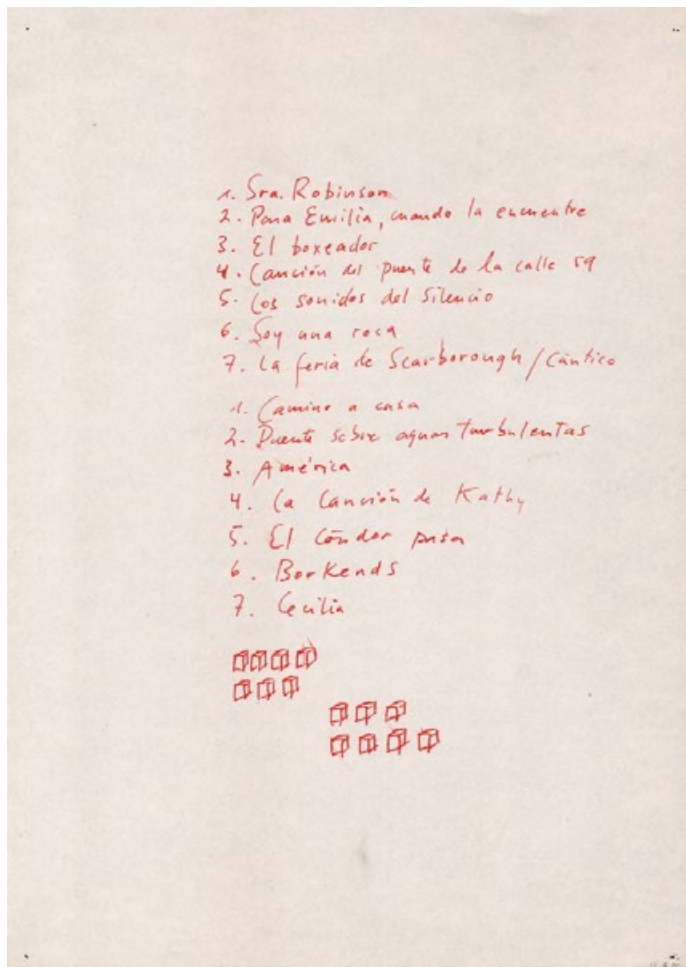 1. Sra. Robinson
2. Para Emilia, cuando la encuentre
3. El boxeador
4. Canción del puente de la calle 59
5. Los sonidos del silencio
6. Soy una roca
7. La feria de Scarborough / Cántico
1. Camino a casa
2. Puente sobre aguas turbulentas
3. América
4. La Canción de Kathy
5. El Cóndor pasa
6. Borkends
7. Cecilia